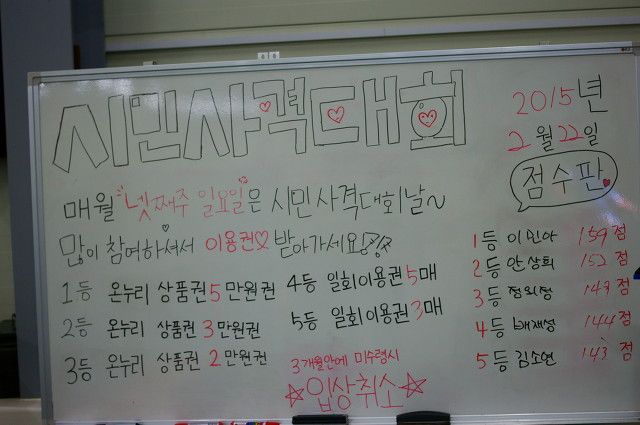 시민사격대회
2015년
2월 22일
점수판
매월 "넷째주 일요일"은 시민사격대회날~
많이 참여하셔서 이용권♡ 받아가세요
1등 온누리 상품권 5만원권
2등 온누리 상품권 3만원권
3등 온누리 상품권 2만원권
4등 일회이용권 5매
5등 일회이용권 3매
3개월안에 미수령시
☆입상취소☆
1등 이민아 159점
2등 안상희 152점
3등 정의정 149점
4등 배재성 144점
5등 김소연 143점